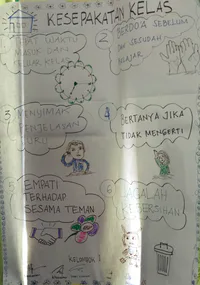 KESEPAKATAN KELAS
1
TEPAT WAKTU
MASUK DAN
KELUAR KELAS
2
BERDO'A SEBELUM
DAN SESUDAH
BELAJAR
3
MENYIMAK
PENJELASAN
GURU
4
BERTANYA JIKA
TIDAK MENGERTI
5
EMPATI
TERHADAP
SESAMA TEMAN
6
JAGALAH
KEBERSIHAN
KELOMPOK